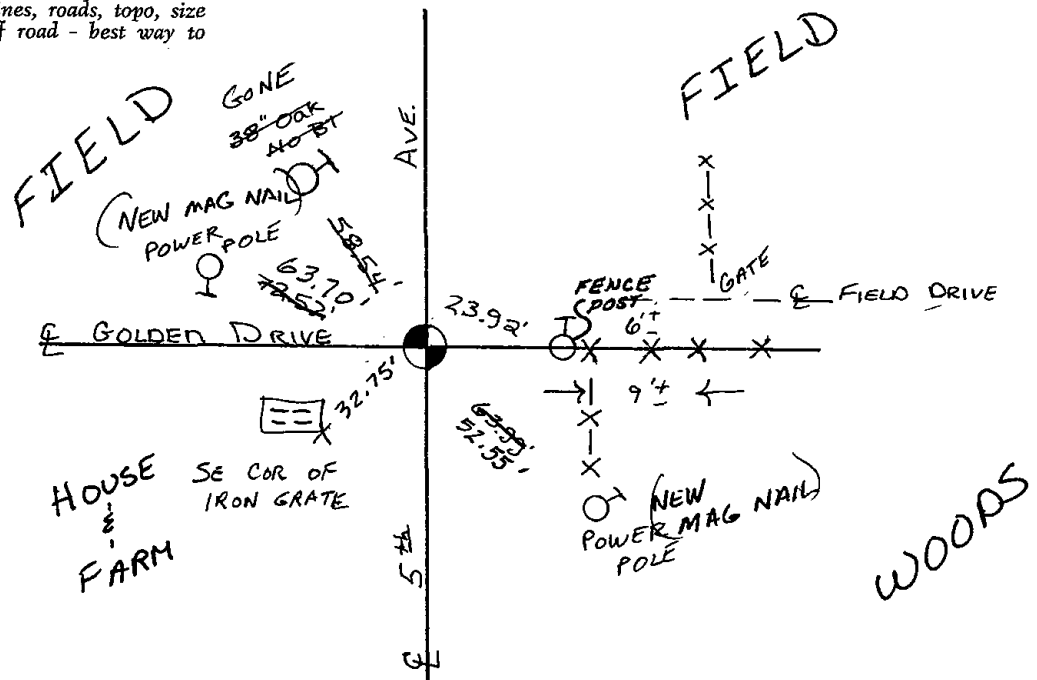 nes, roads, topo, size
f road - best way to
FIELD
GONE
38" Oak
No BT
(NEW MAG NAIL)
POWER POLE
58.54'
63.70'
72.52'
AVE.
FIELD
GATE
℄ FIELD DRIVE
FENCE
POST
6'±
23.92'
℄ GOLDEN DRIVE
9'±
32.75'
63.99'
52.55'
SE COR OF
IRON GRATE
HOUSE
&
FARM
(NEW
MAG NAIL)
POWER
POLE
WOODS
5th
℄